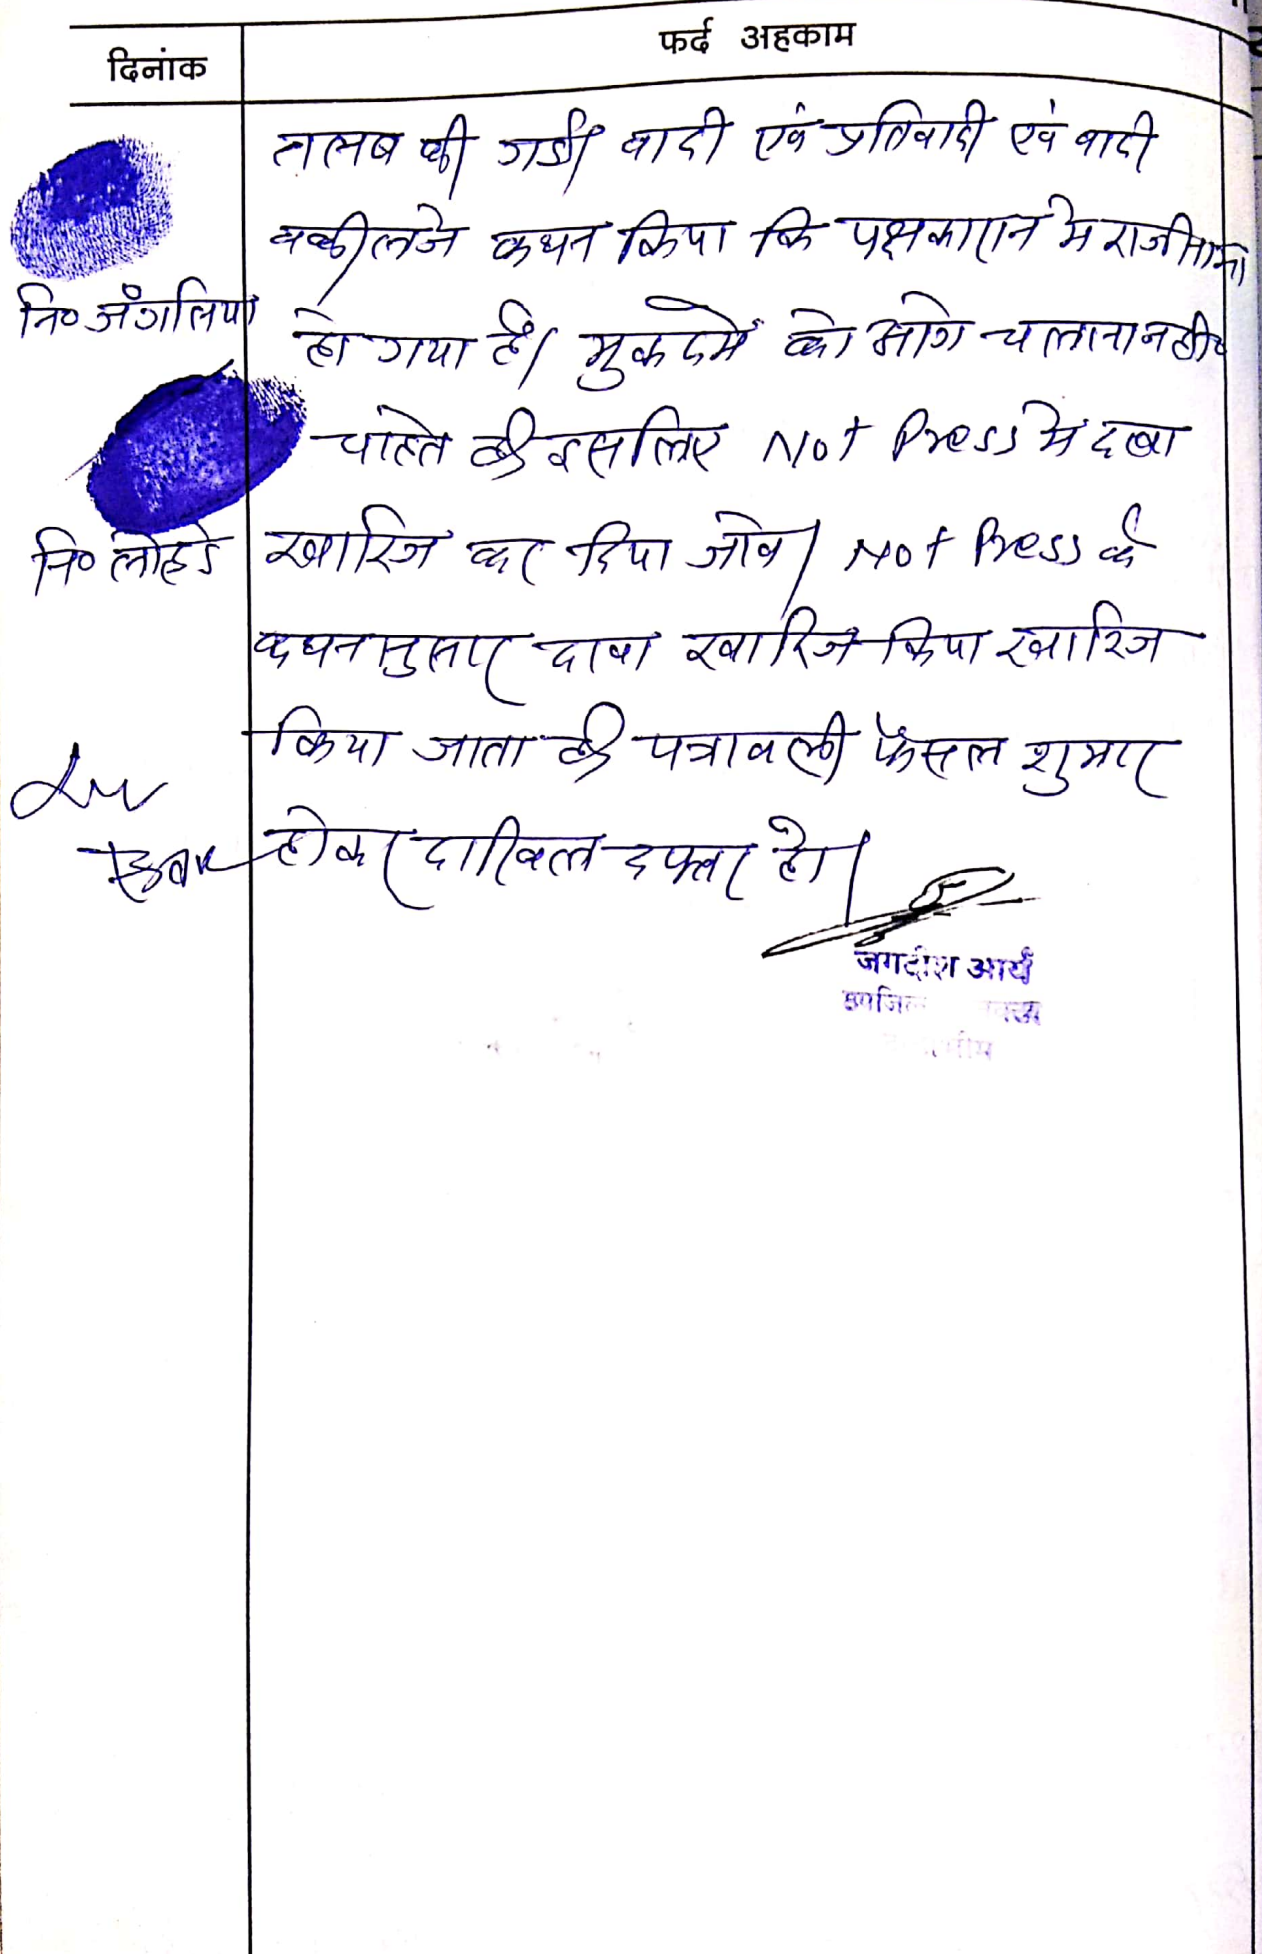 दिनांक
फर्द अहकाम
तलब की गई। वादी एवं प्रतिवादी एवं वादी
वकीलने कथन किया कि पक्षकारान मे राजीनामा
नि० जँगलिया
हो गया है। मुकदमें को आगे चलाना नही
चाहते है इसलिए Not Press में दावा
नि० लोहडे
खारिज कर दिया जावे। Not Press के
कथनानुसार दावा खारिज किया खारिज
किया जाता है पत्रावली फैसल शुमार
होकर दाखिल दफ्तर हो।
जगदीश आर्य